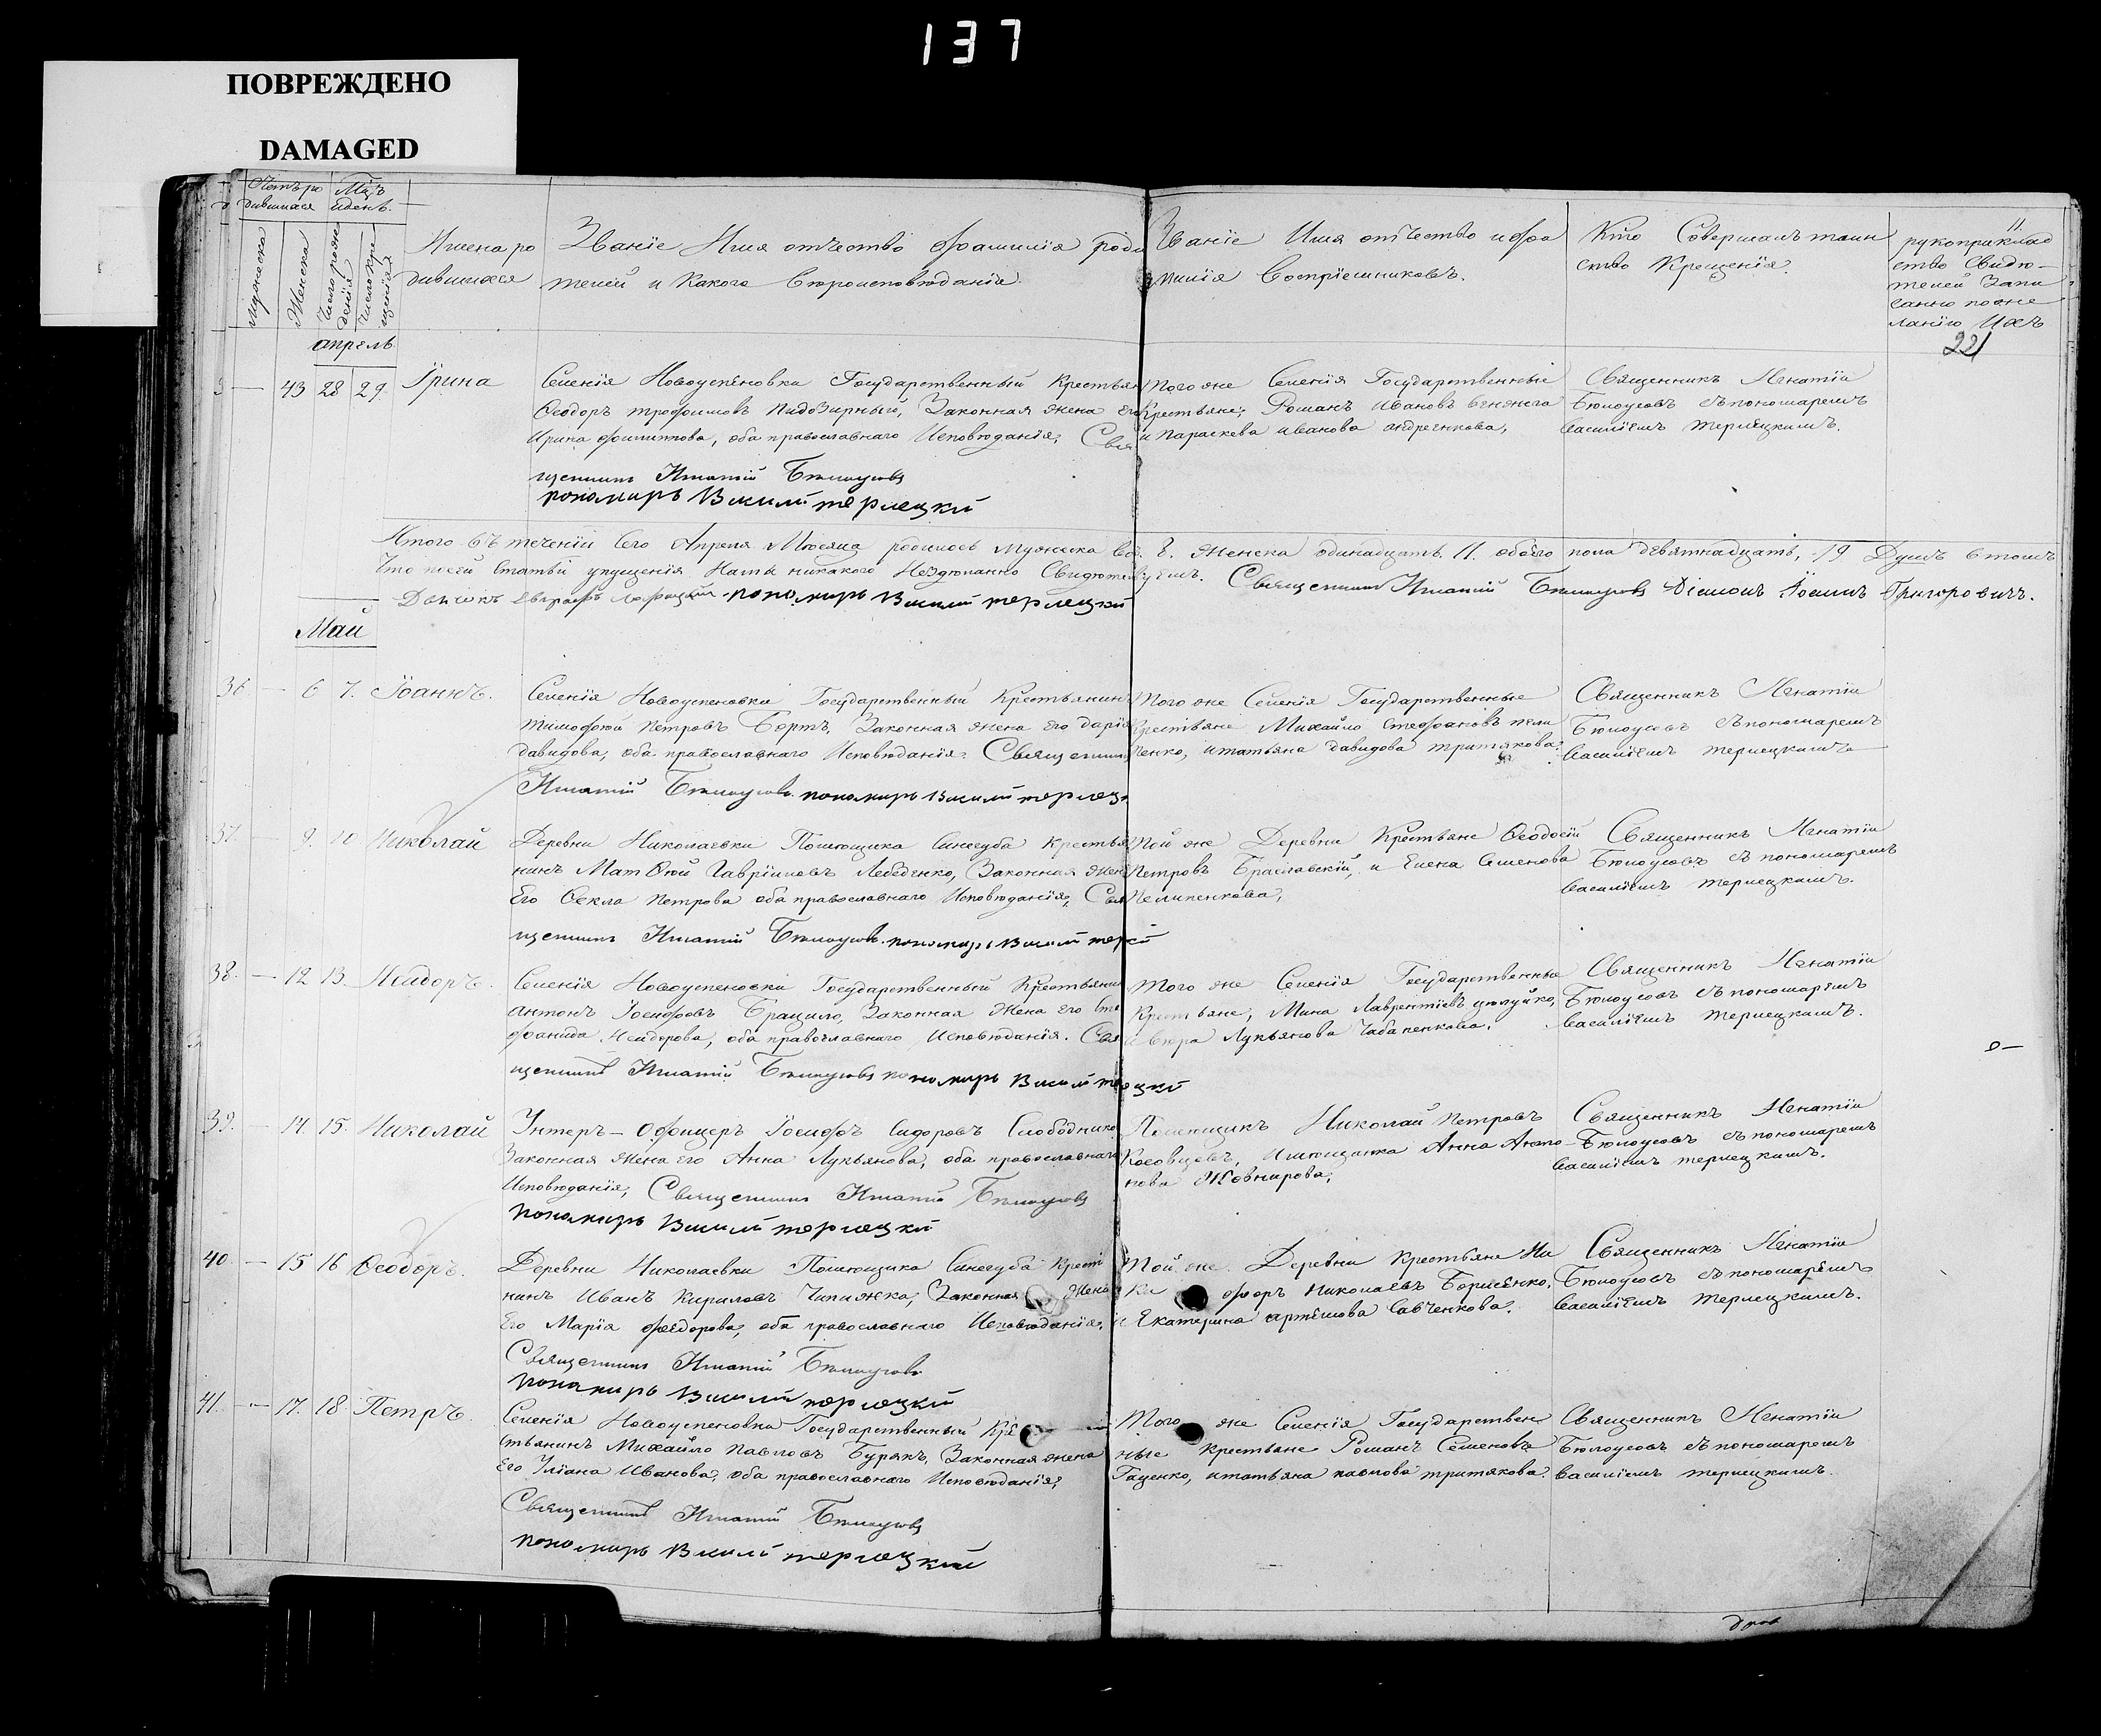 137
ПОВРЕЖДЕНО
DAMAGED
Мѣц. и день.
Мужеска
Женска
Число рож денія
Число кре щенія
Имена ро
дившихся
Званіе Имя отчество фамилія роди
телей и Какого Вѣроисповѣданія.
Званіе Имя отчество и фа
милія Воспріемниковъ.
Кто Совершалъ таин
ство Крещенія.
11.
рукоприклад
ство Свидѣ-
телей Запи
санію по же
ланію Ихъ
221
апрель
43 28 29. Ірина
Селенія Новоуспеновки Государственный Крестьян
Ѳеодоръ трофимовъ Пидозирный, Законная жена его
Ирина филиппова, оба православнаго Исповѣданія, Свя
щенникъ Игнатій Бѣлоусовъ
пономарь Василій терлецкій
того же Селенія Государственные
Крестьяне; Романъ Ивановъ
и Параскева иванова андреенкова,
Священникъ Игнатій
Бѣлоусовъ съ пономаремъ
василіемъ терлецкимъ.
Итого Въ теченіи Сего Апреля Мѣсяца родилось мужеска 8. женска одинадцать 11. обоего пола девятнадцать, 19 Душъ в томъ
Что по сей Статьи упущенія Нами никакого Нездѣланно Свидѣтельствуемъ. Священникъ Игнатій Бѣлоусовъ Діаконъ Іоаннъ Григоровичъ.
пономарь Василій терлецкій
Май
36 — 6 7. Іоаннъ.
Селенія Новоуспеновки Государственный Крестьянинъ
тимофѣй Петровъ Бортъ, Законная жена его Дарія
давидова, оба православнаго Исповѣданія. Священникъ
Игнатій Бѣлоусовъ пономарь Василій терлец
того же Селенія Государственные
Крестьяне Михайло Стефановъ пили
пенко, и татьяна давидова тритякова.
Священникъ Игнатій
Бѣлоусовъ съ пономаремъ
василіемъ терлецкимъ
37. — 9. 10 Николай
Деревни Николаевки Помѣщика Синегуба Крестья
нинъ Матѳѣй Гавріиловъ Лебеденко, Законная жена
Его Ѳекла Петрова оба православнаго Исповѣданія, Свя
щенникъ Игнатій Бѣлоусовъ. пономарь Василій тер
той же Деревни Крестьяне Ѳеодосій
Петровъ Браславскій, и Елена Семенова
Пелипенкова,
Священникъ Игнатій
Бѣлоусовъ съ пономаремъ
василіемъ терлецкимъ.
38. — 12 13. Исидоръ.
Селенія Новоуспеновки Государственный Крестьянин
антонъ Іосифовъ Брацило, Законная жена его Сте
фанида Исидорова, оба православнаго Исповѣданія. Свя
щенникъ Игнатій Бѣлоусовъ пономарь Василій терлецкій
того же Селенія Государственные
Крестьяне, Мина Лаврентіевъ цюлуйко,
Лукьянова Чабаненкова.
Священникъ Игнатій
Бѣлоусовъ съ пономаремъ
василіемъ терлецкимъ.
39. — 14. 15. Николай
Унтеръ-Офицеръ Іосифъ Сидоровъ Слободник
Законная жена его Анна Лукьянова, оба православнаго
Исповѣданія, Священникъ Игнатій Бѣлоусовъ
пономарь Василій терлецкій
Помѣщикъ Николай Петровъ
Косовцевъ, и мѣщанка Анна Анто
нова Жовнирова,
Священникъ Игнатій
Бѣлоусовъ съ пономаремъ
василіемъ терлецкимъ.
40 — 15 16 Ѳеодоръ.
Деревни Николаевки Помѣщика Синегуба Крестья
нинъ Иванъ Кириловъ Чипижка, Законная жена
Его Марія федорова, оба православнаго Исповѣданія.
Священникъ Игнатій Бѣлоусовъ
пономарь Василій терлецкій
той же Деревни Крестьяне Ни
ки форъ Николаевъ Борисенко,
и Екатерина артемова Савченкова.
Священникъ Игнатій
Бѣлоусовъ съ пономаремъ
василіемъ терлецкимъ.
41. — 17. 18. Петръ.
Селенія Новоуспеновка Государственный Кре
стьянинъ Михайло Павловъ Бурякъ, Законная жена
Его Уліана Иванова, оба православнаго Исповѣданія,
Священникъ Игнатій Бѣлоусовъ
пономарь Василій терлецкій
того же Селенія Государствен
ные Крестьяне Романъ Семеновъ
Гаценко, и татьяна павлова тритякова.
Священникъ Игнатій
Бѣлоусовъ съ пономаремъ
василіемъ терлецкимъ.